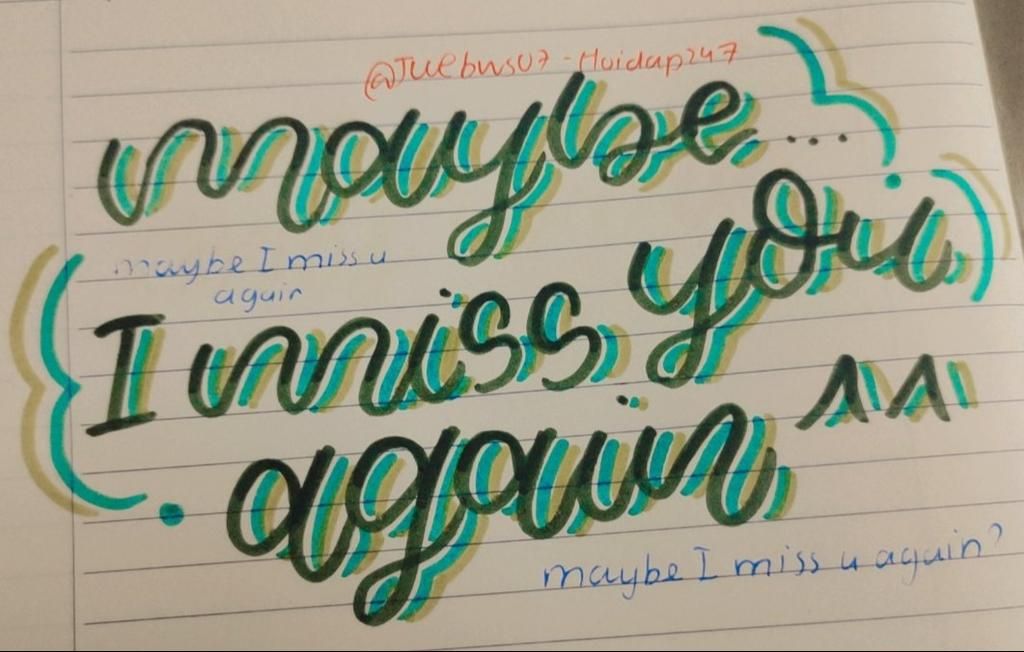 @Tuebws07-Huidap247
maybe...
maybe I miss u
again
I miss you
again ^^
maybe I miss u again?